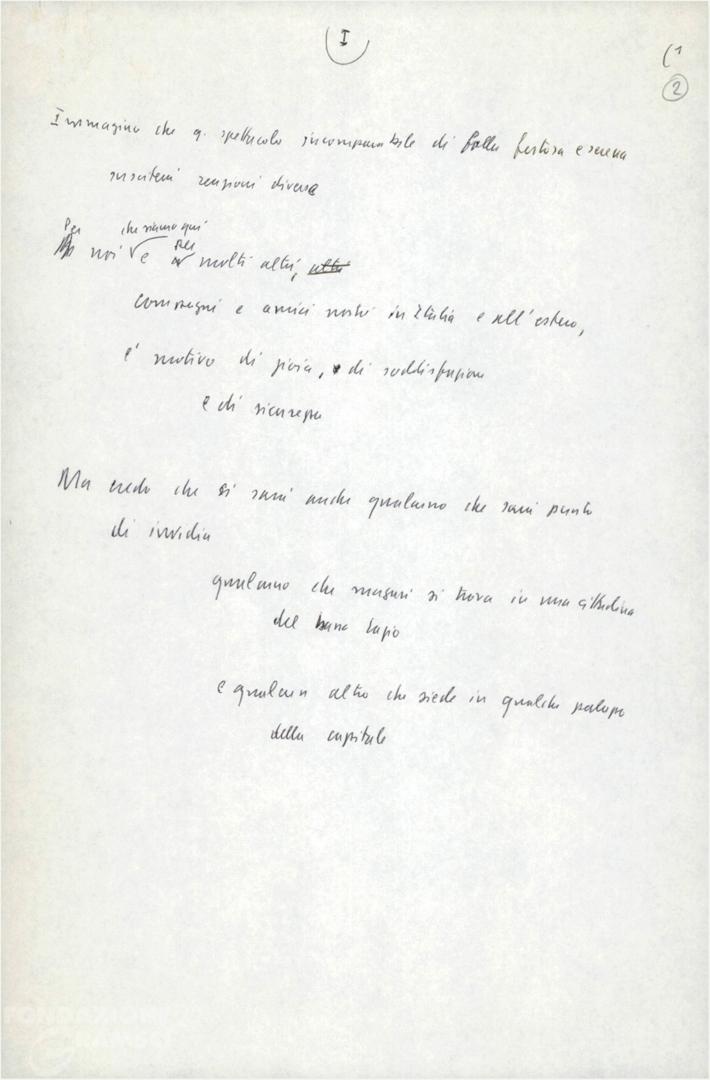 I
(1
2
Immagino che q. spettacolo incomparabile di folla festosa e serena
susciterà reazioni diverse
Per che siamo qui
noi e per molti altri, altri
compagni e amici nostri in Italia e all'estero,
è motivo di gioia, di soddisfazione
e di sicurezza
Ma credo che si sarà anche qualcuno che sarà punto
di invidia
qualcuno che magari si trova in una cittadina
del basso Lazio
e qualcun altro che siede in qualche palazzo
della capitale
FONDAZIONE
GRAMSCI